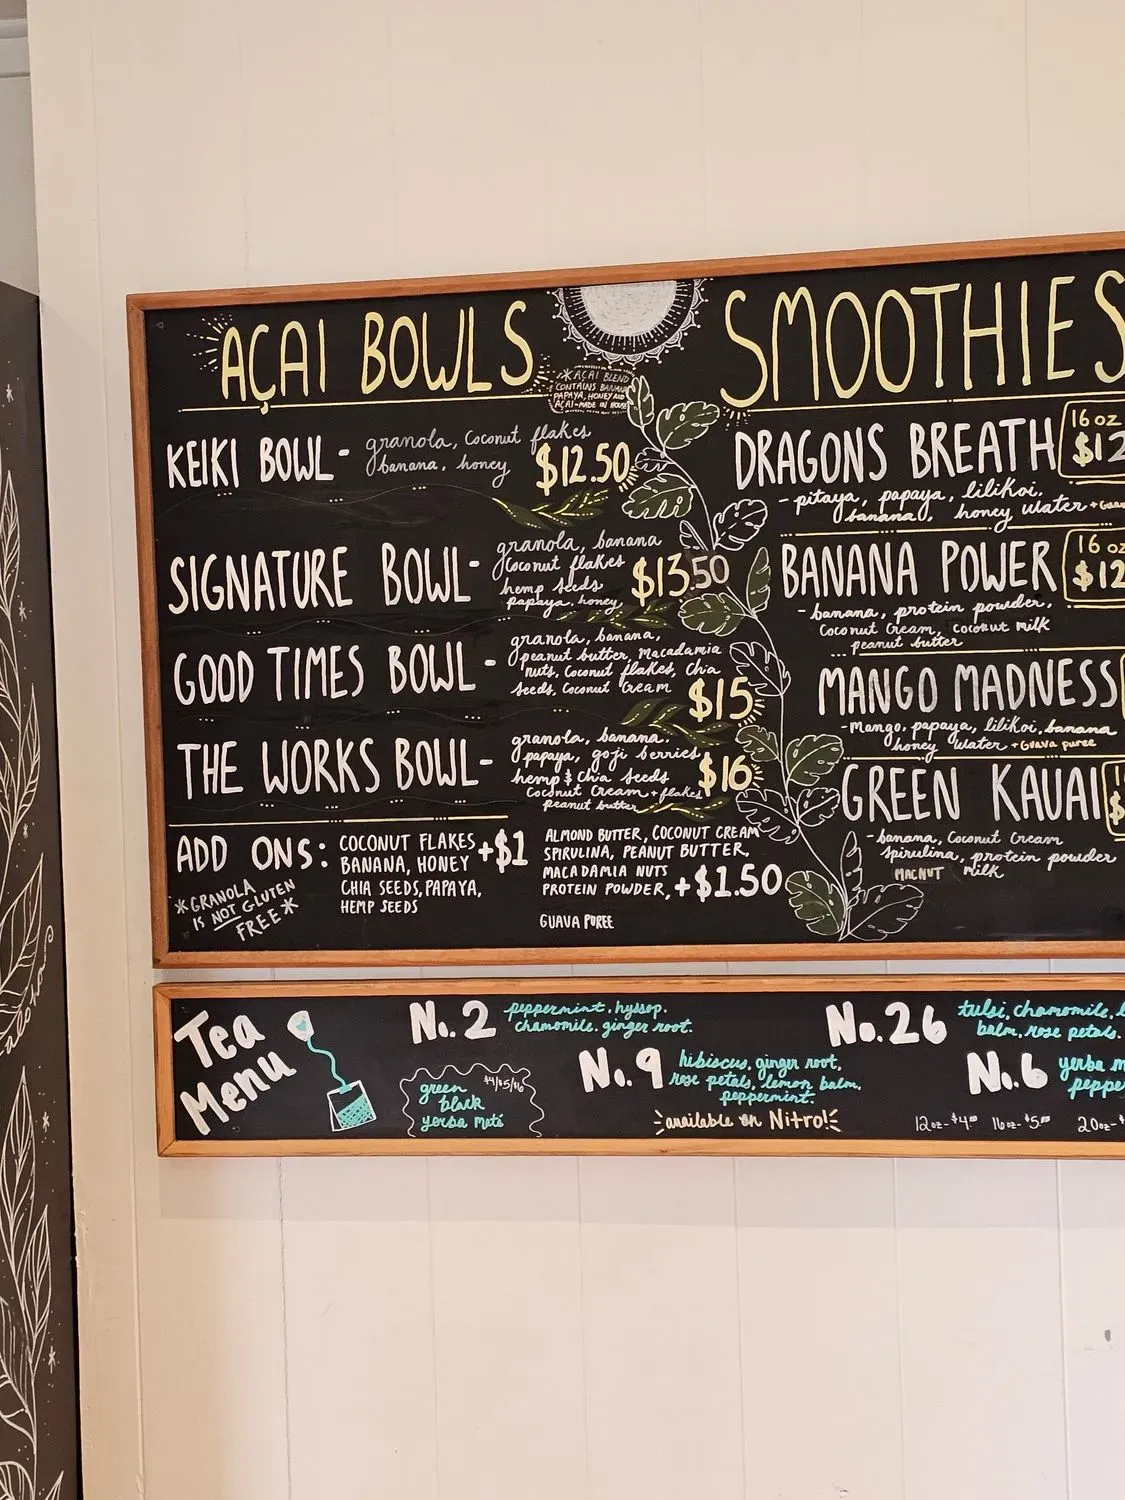 AÇAI BOWLS
*AÇAI BLEND
CONTAINS BANANA
PAPAYA, HONEY AND
AÇAI-MADE IN HOUSE
KEIKI BOWL- granola, Coconut flakes
banana, honey $12.50
SIGNATURE BOWL- granola, banana
Coconut flakes
hemp seeds
papaya, honey $13.50
GOOD TIMES BOWL - granola, banana,
peanut butter, macadamia
nuts, Coconut flakes, Chia
Seeds, Coconut Cream $15
THE WORKS BOWL- granola, banana,
papaya, goji berries,
hemp & Chia Seeds
Coconut Cream + flakes
peanut butter $16
ADD ONS: COCONUT FLAKES
BANANA, HONEY
CHIA SEEDS, PAPAYA,
HEMP SEEDS +$1
ALMOND BUTTER, COCONUT CREAM
SPIRULINA, PEANUT BUTTER,
MACADAMIA NUTS
PROTEIN POWDER, +$1.50
GUAVA PUREE
*GRANOLA
IS NOT GLUTEN
FREE*
SMOOTHIES
DRAGONS BREATH 16 oz
$12
-pitaya, papaya, lilikoi,
banana, honey water
BANANA POWER 16 oz
$12
-banana, protein powder,
Coconut Cream, coconut milk
peanut butter
MANGO MADNESS
-Mango, papaya, lilikoi, banana
honey water +Guava puree
GREEN KAUAI
-banana, Coconut Cream
Spirulina, protein powder
MACNUT milk
Tea
Menu
green
black
yerba maté
$4/$5/$6
No. 2 peppermint, hyssop,
chamomile, ginger root.
No. 9 hibiscus, ginger root,
rose petals, lemon balm,
peppermint.
available on Nitro!
No. 26 tulsi, chamomile,
balm, rose petals.
No. 6 yerba
12oz- $4 16oz- $5 20oz-